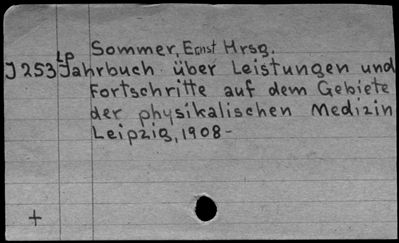 Sommer, Ernst Hrsg.
LP
J 253 Jahrbuch über Leistungen und
Fortschritte auf dem Gebiete
der physikalischen Medizin
Leipzig, 1908-
+